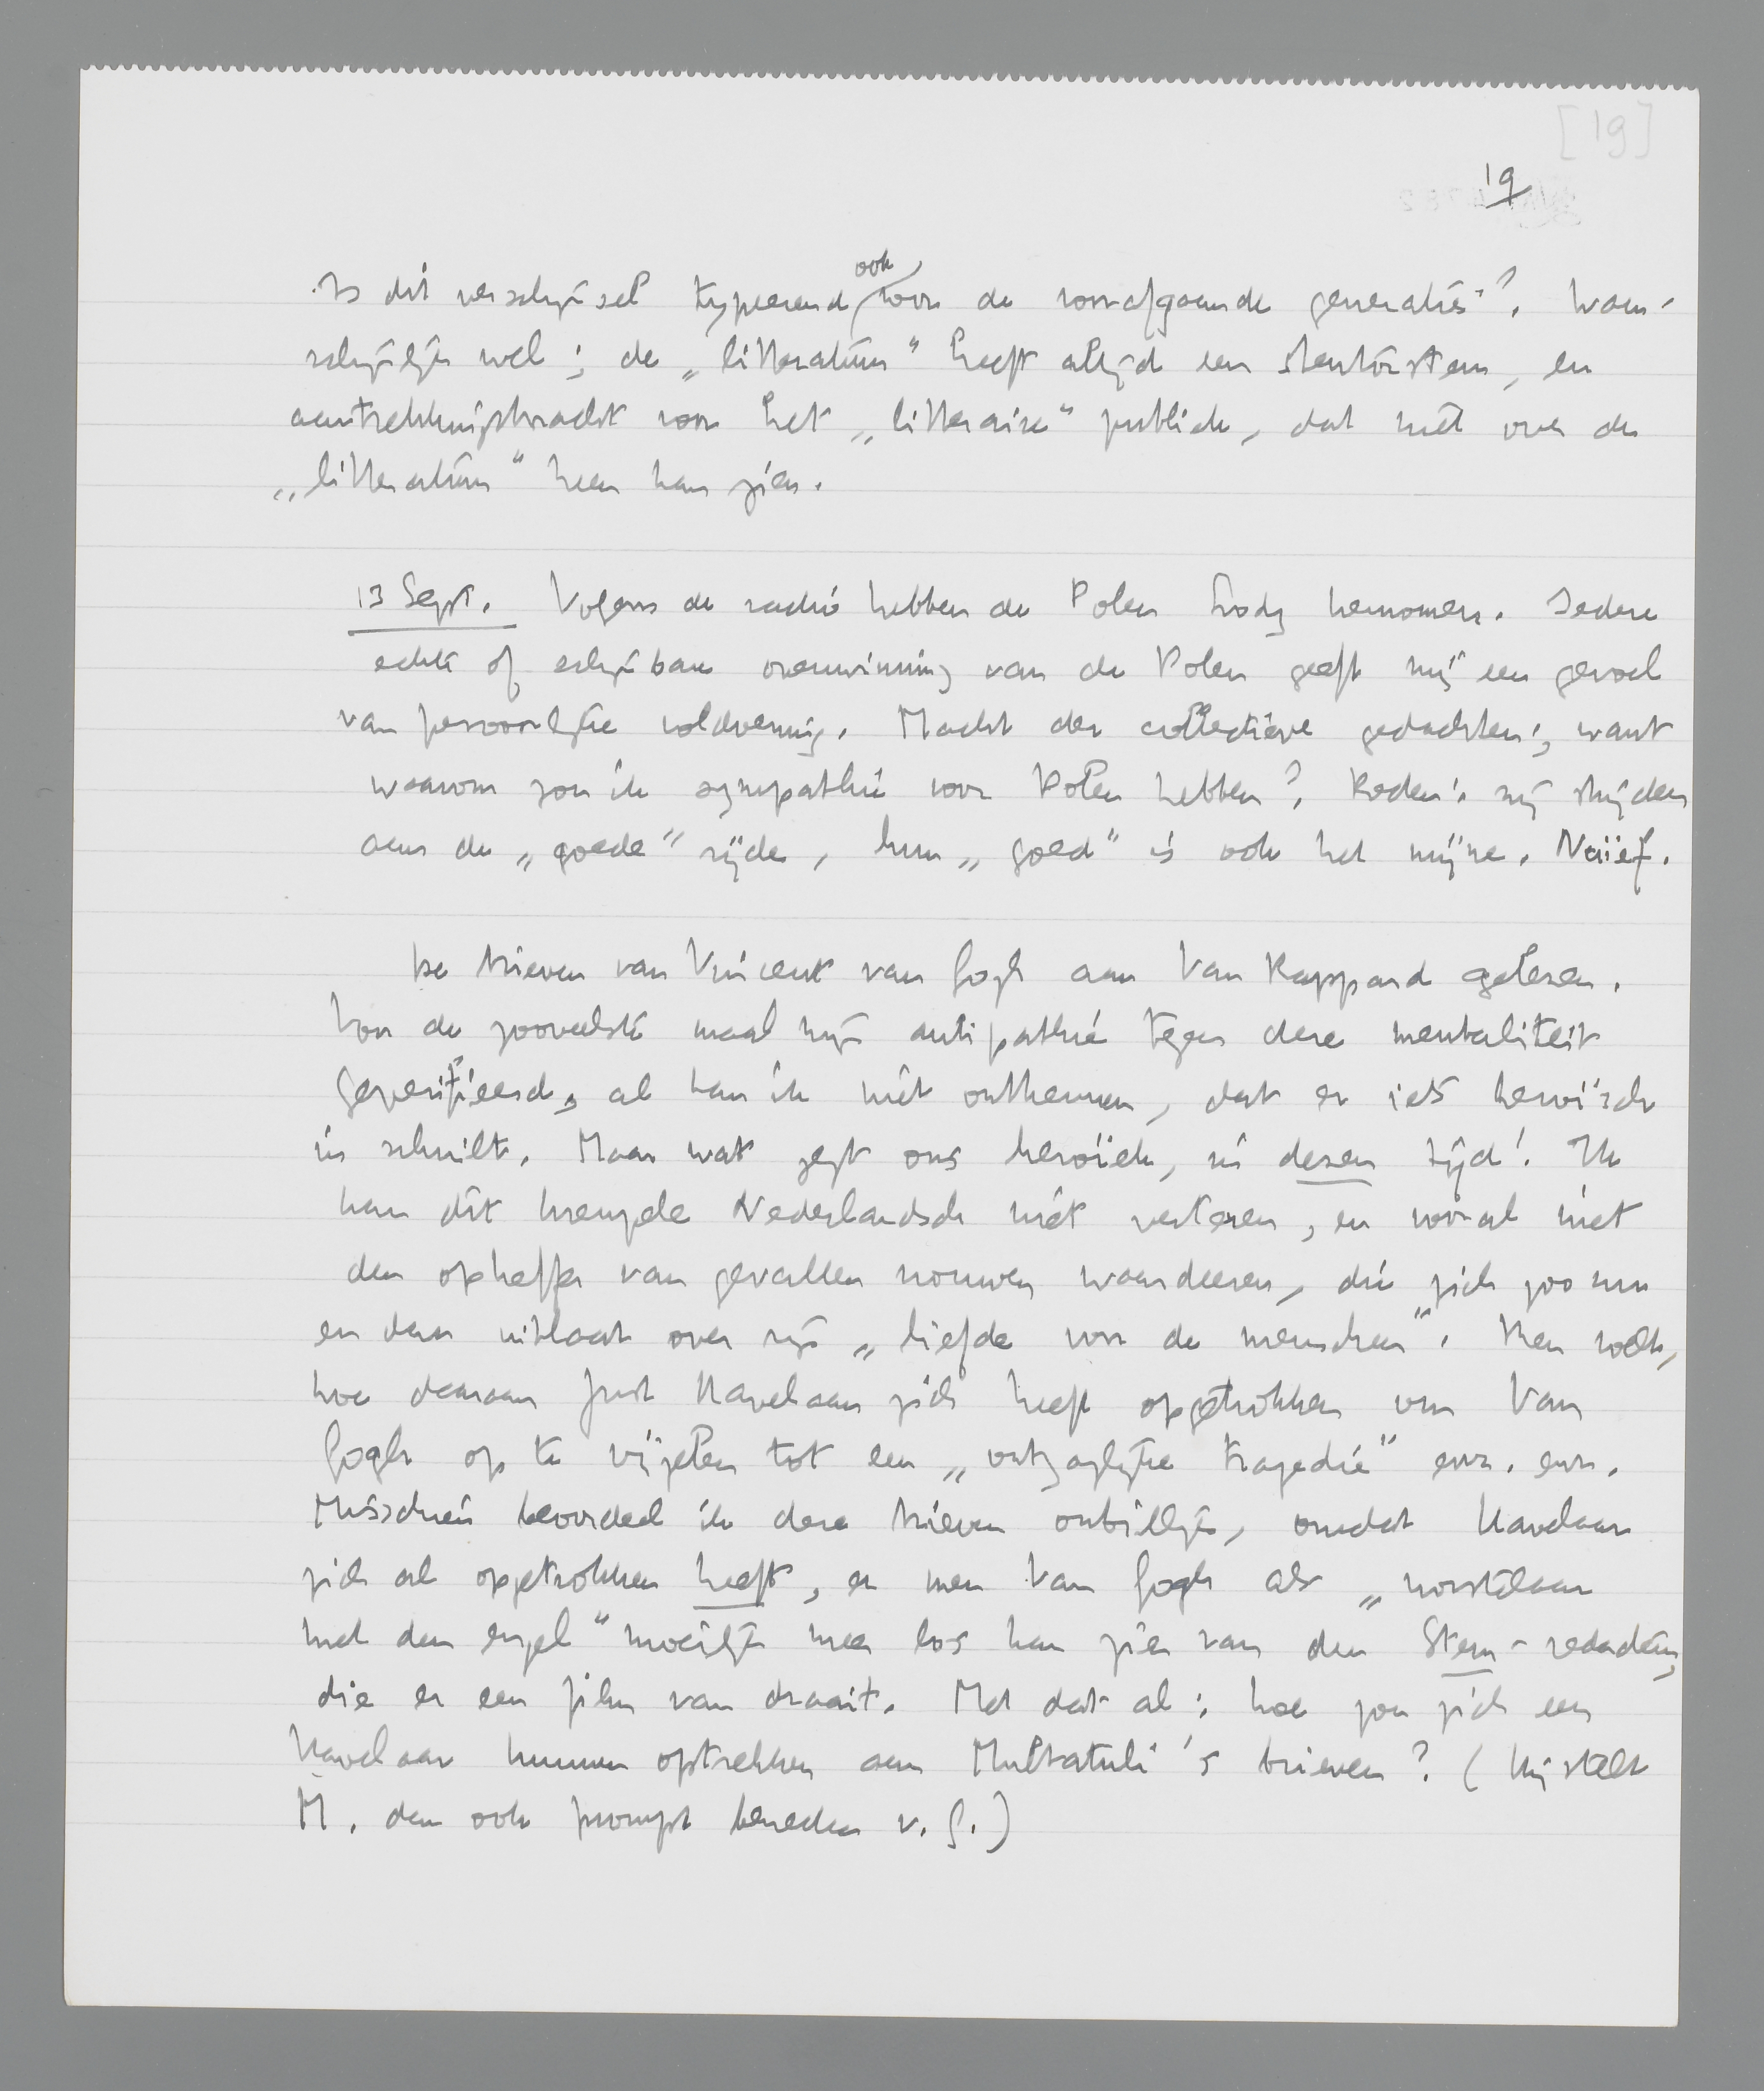 [19]
19
Is dit verschijnsel typeerend ook voor de voorafgaande generaties? Waar-
schijnlijk wel; de „litteratuur" heeft altijd een stentorstem, en
aantrekkingskracht voor het „litteraire" publiek, dat niet over de
„litteratuur" heen kan zien.
13 Sept. Volgens de radio hebben de Polen Lodz hernomen. Iedere
echte of schijnbare overwinning van de Polen geeft mij een gevoel
van persoonlijke voldoening. Macht der collectieve gedachten; want
waarom zou ik sympathie voor Polen hebben? Reden: zij strijden
aan de „goede" zijde, hun „goed" is ook het mijne. Naïef.
De brieven van Vincent van Gogh aan Van Rappard gelezen.
Voor de zooveelste maal mijn antipathie tegen deze mentaliteit
geverifieerd, al kan ik niet ontkennen, dat er iets heroïsch
in schuilt. Maar wat zegt ons heroïek, in dezen tijd! Ik
kan dit kreupele Nederlandsch niet verteren, en vooral niet
den opheffer van gevallen vrouwen waardeeren, die zich zoo nu
en dan uitlaat over zijn „liefde voor de menschen". Men voelt,
hoe daaraan Just Havelaar zich heeft opgetrokken om Van
Gogh op te vijzelen tot een „ontzaglijke tragedie" enz. enz.
Misschien beoordeel ik deze brieven onbillijk, omdat Havelaar
zich al opgetrokken heeft, en men Van Gogh als „worstelaar
met den engel" moeilijk meer los kan zien van den Stem-redacteur,
die er een film van draait. Met dat al: hoe zou zich een
Havelaar kunnen optrekken aan Multatuli's brieven? (Hij stelt
M. dan ook prompt beneden v. G.)